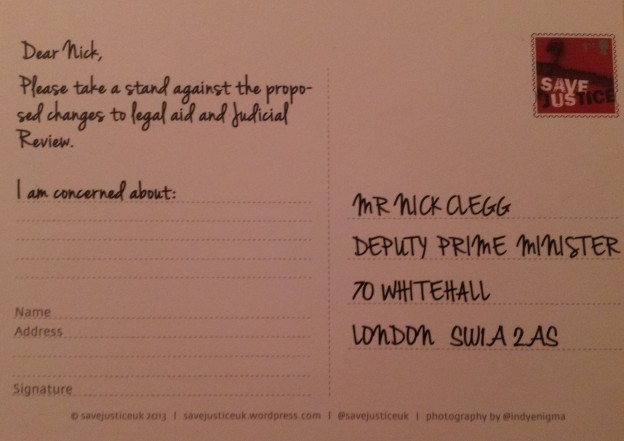 Dear Nick,
Please take a stand against the propo-
sed changes to legal aid and Judicial
Review.
I am concerned about:
Name
Address
Signature
SAVE
JUSTICE
MR NICK CLEGG
DEPUTY PRIME MINISTER
70 WHITEHALL
LONDON SW1A 2AS
© savejusticeuk 2013 | savejusticeuk.wordpress.com | @savejusticeuk | photography by @indyenigma